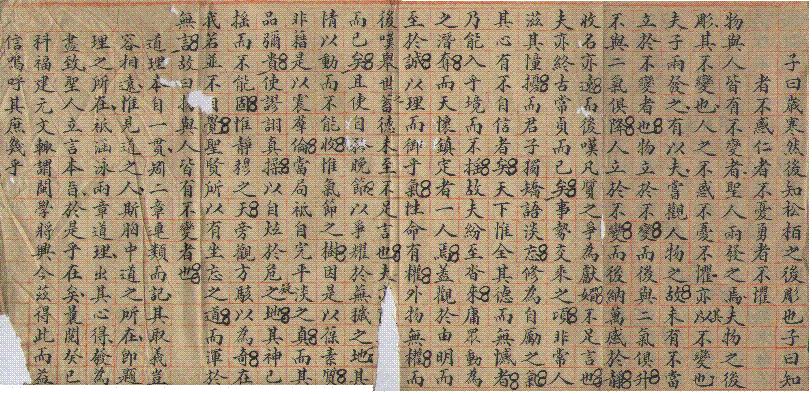 子曰歲寒然後知松柏之後彫也子曰知
者不惑仁者不憂勇者不懼
物與人皆有不變者聖人兩發之焉夫物之後
彫其不變也人之不惑不憂不懼亦以不變也
夫子兩發之有以夫當觀人物之故未有不當
立於不變者也物立於不變而後與二氣俱升
不與二氣俱降人立於不變而後納萬感於靜
收名亦遠而後嘆凡質之爭為獻媚不足言也
夫亦終古當貞而已矣事勢交來之頃非常人
滋其憧擾而君子獨矯語淡忘修為自勵之氣
其心有不自信者矣天下惟全其德而無憾者
乃能入乎境而不搖故夫紛至沓來庸眾動為
之潛奪而天懷鎮定者一人焉蓋觀於由明而
至於誠以理而御乎氣性命有權外物無權而
後嘆舉世蓄德未至不足言也夫
而已矣且使自晚節以爭耀於蕪穢之地其
情以動而不能收惟氣節之樹因是以葆素質
非籍是以震羣倫當局祗自完平淡之真而其
品彌貴使謬詡真操以自炫於危之地其神已
搖而不能固惟靜穆之天旁觀方駭以為奇在
我若並不自覺聖賢所以有坐忘之道而渾於
無言故曰物與人皆有不變者也
道理本自一貫二章連類而記其取義豈
容相遠惟見道之人斯胸中道之所在即題
理之所在祗涵泳兩章道理出其心得發為
盡致聖人立言本旨於是乎在矣曩閱癸巳
科福建元文輒謂閩學將興今茲得此而益
信嗚呼其庶幾乎